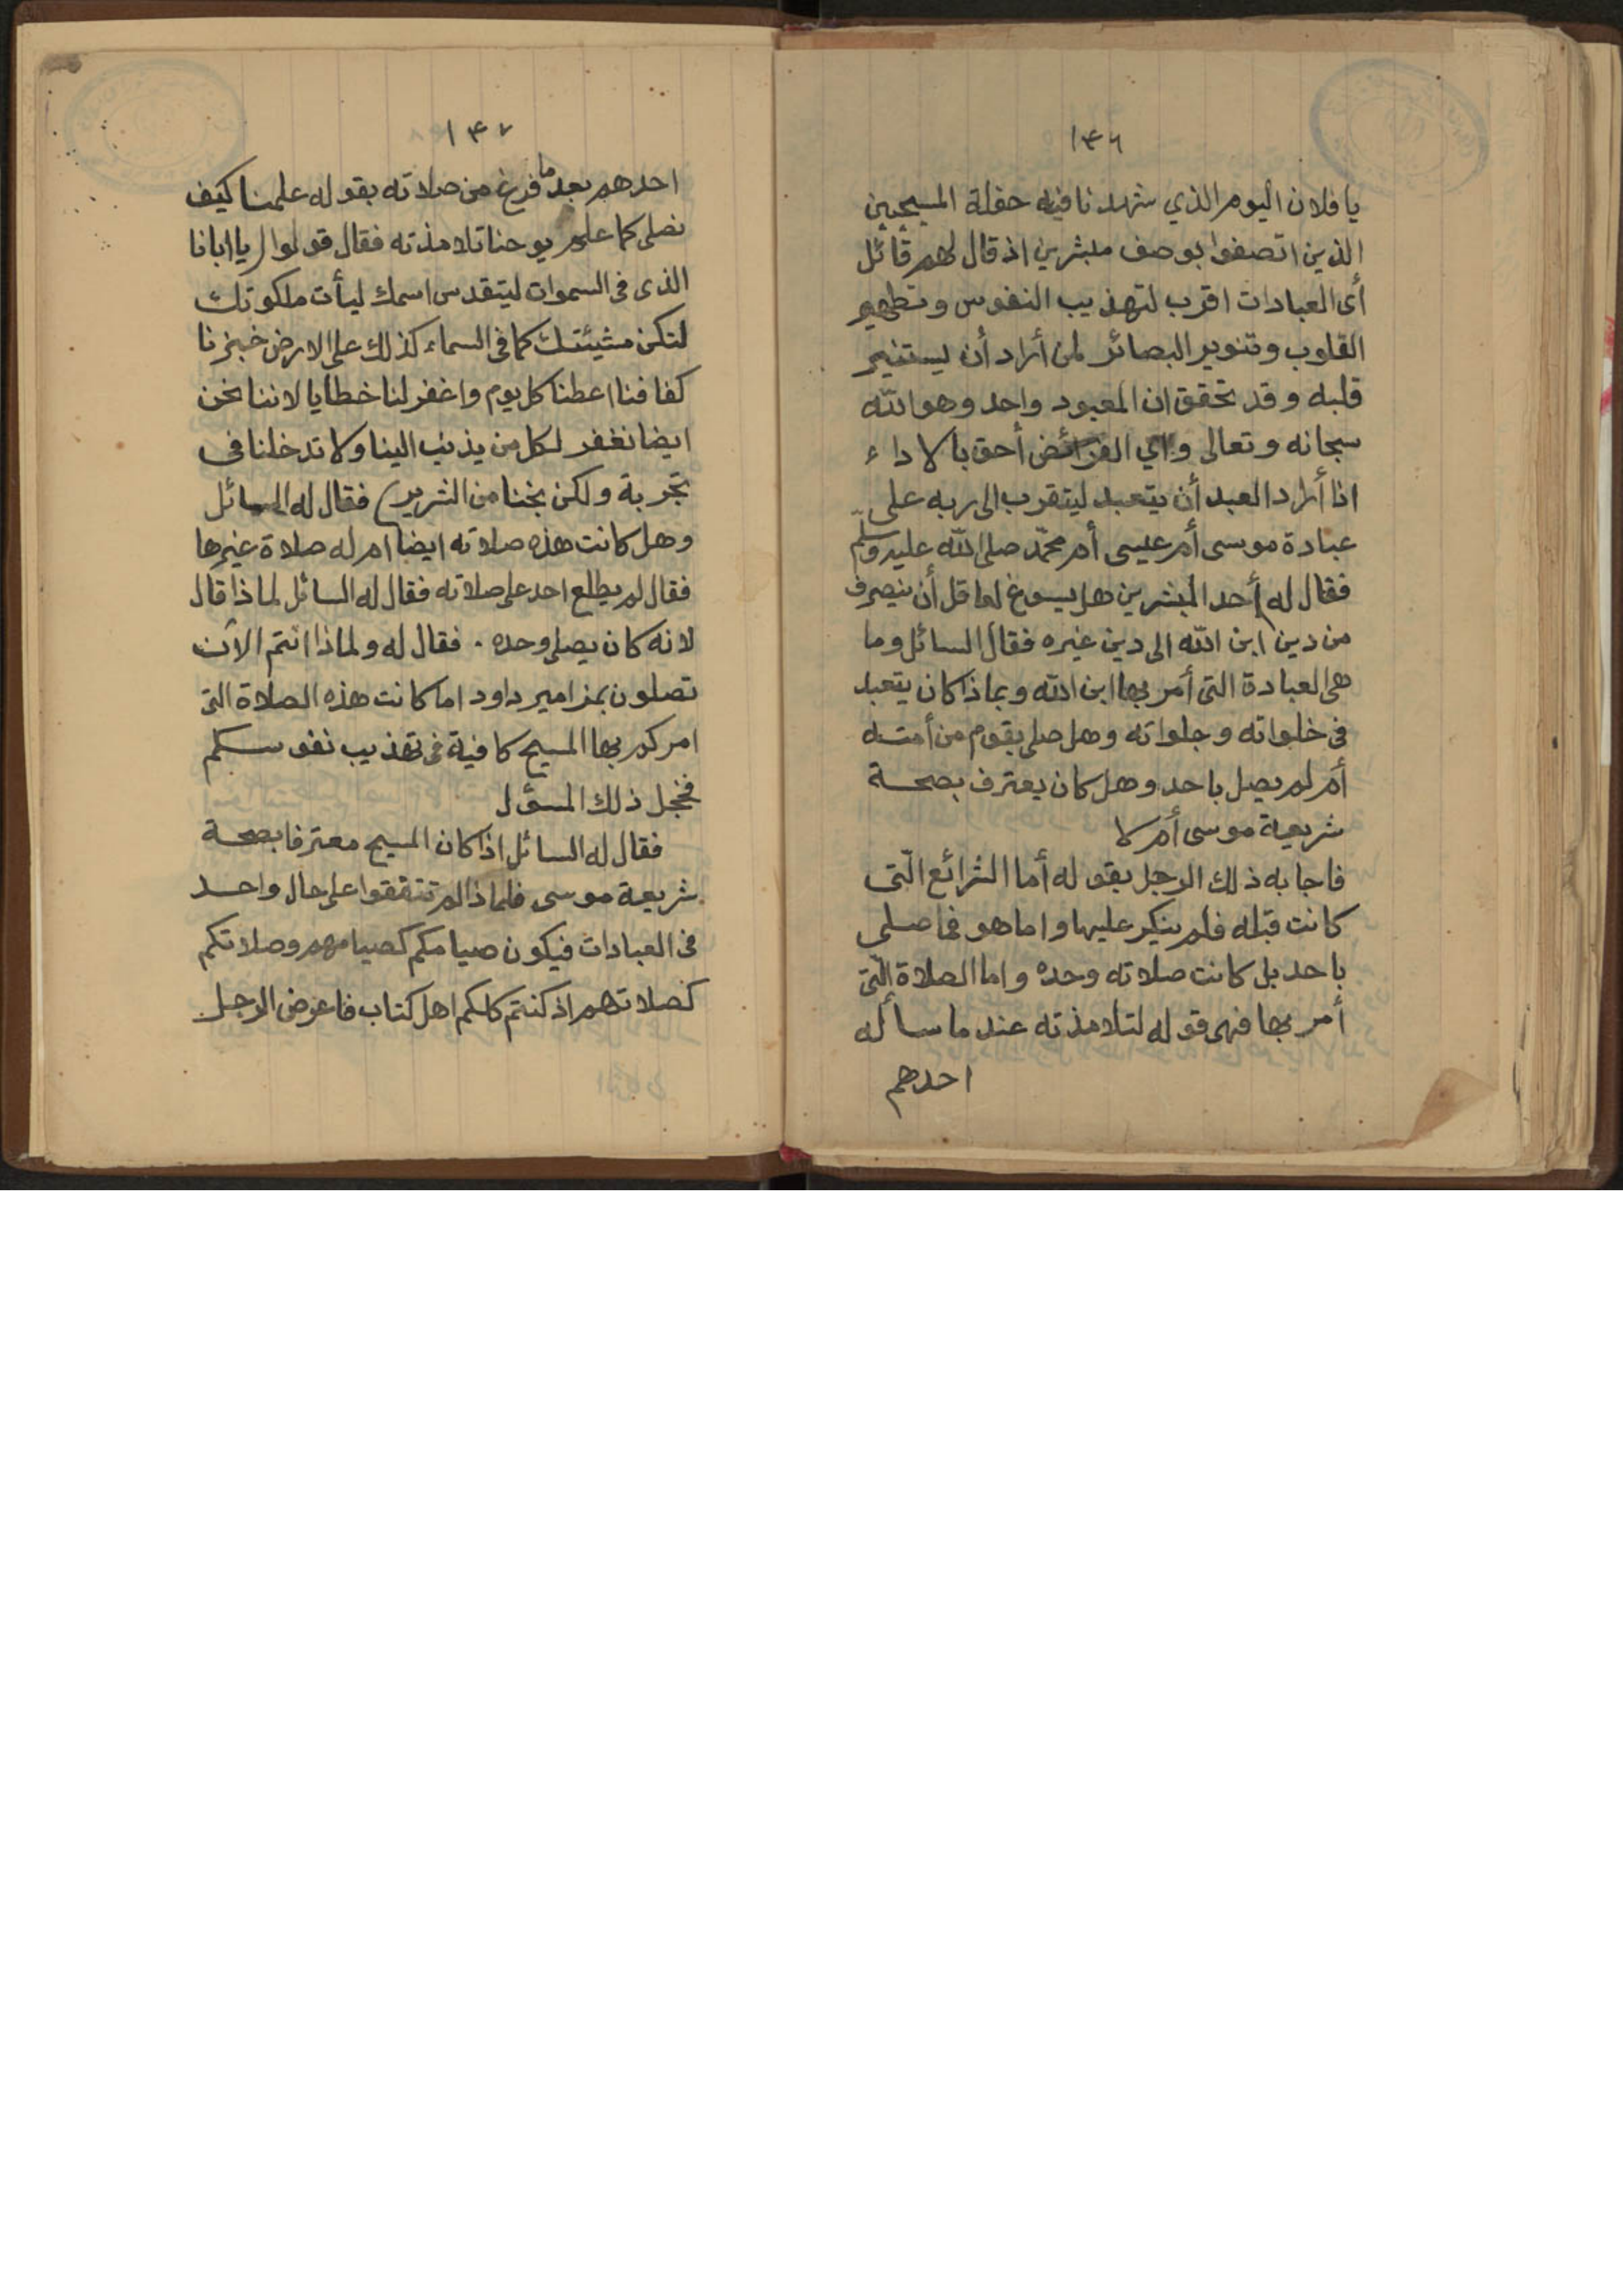 ١٤٦
يا فلان اليوم الذي شهدنا فيه حفلة المسيحيين
الذين اتصفوا بوصف مبشرين اذ قال لهم قائل
أى العبادات اقرب لتهذيب النفوس وتطهير
القلوب وتنوير البصائر لمن أراد أن يستنير
قلبه وقد تحقق ان المعبود واحد وهو الله
سبحانه وتعالى واي الفرائض أحق بالاداء
اذا أراد العبد أن يتعبد ليتقرب الى ربه على
عبادة موسى أم عيسى أم محمّد صلى الله عليه وسلّم
فقال له أحد المبشرين هل يسوغ لعاقل أن ينصرف
من دين ابن الله الى دين غيره فقال السائل وما
هى العبادة التى أمر بها ابن الله وبماذا كان يتعبد
فى خلواته وجلواته وهل صلى بقوم من أمته
أم لم يصل باحد وهل كان يعترف بصحة
شريعة موسى أم لا
فاجابه ذلك الرجل بقوله أما الشرائع الّتى
كانت قبله فلم ينكر عليها واما هو فما صلى
باحد بل كانت صلاته وحده واما الصلاة الّتى
أمر بها فهى قوله لتلامذته عند ما سأله
احدهم
١٤٧
احدهم بعد ما فرغ من صلاته بقوله علمنا كيف
نصلى كما علم يوحنا تلامذته فقال قولوا (يا ابانا
الذى فى السموات ليتقدس اسمك ليأت ملكوتك
لتكن مشيئتك كما فى السماء كذلك على الارض خبزنا
كفافنا اعطنا كل يوم واغفر لنا خطايا لاننا نحن
ايضا نغفر لكل من يذنب الينا ولا تدخلنا فى
تجربة ولكن نجنا من الشرير) فقال له السائل
وهل كانت هذه صلاته ايضا ام له صلاة غيرها
فقال لم يطلع احد على صلاته فقال له السائل لماذا قال
لانه كان يصلى وحده . فقال له ولماذا انتم الآن
تصلون بمزامير داود اما كانت هذه الصلاة التى
امركم بها المسيح كافية فى تهذيب نفوسكم
فخجل ذلك المسؤل
فقال له السائل اذا كان المسيح معترفا بصحة
شريعة موسى فلماذا لم تتفقوا على حال واحد
فى العبادات فيكون صيامكم كصيامهم وصلاتكم
كصلاتهم اذ كنتم كلكم اهل كتاب فاعرض الرجل